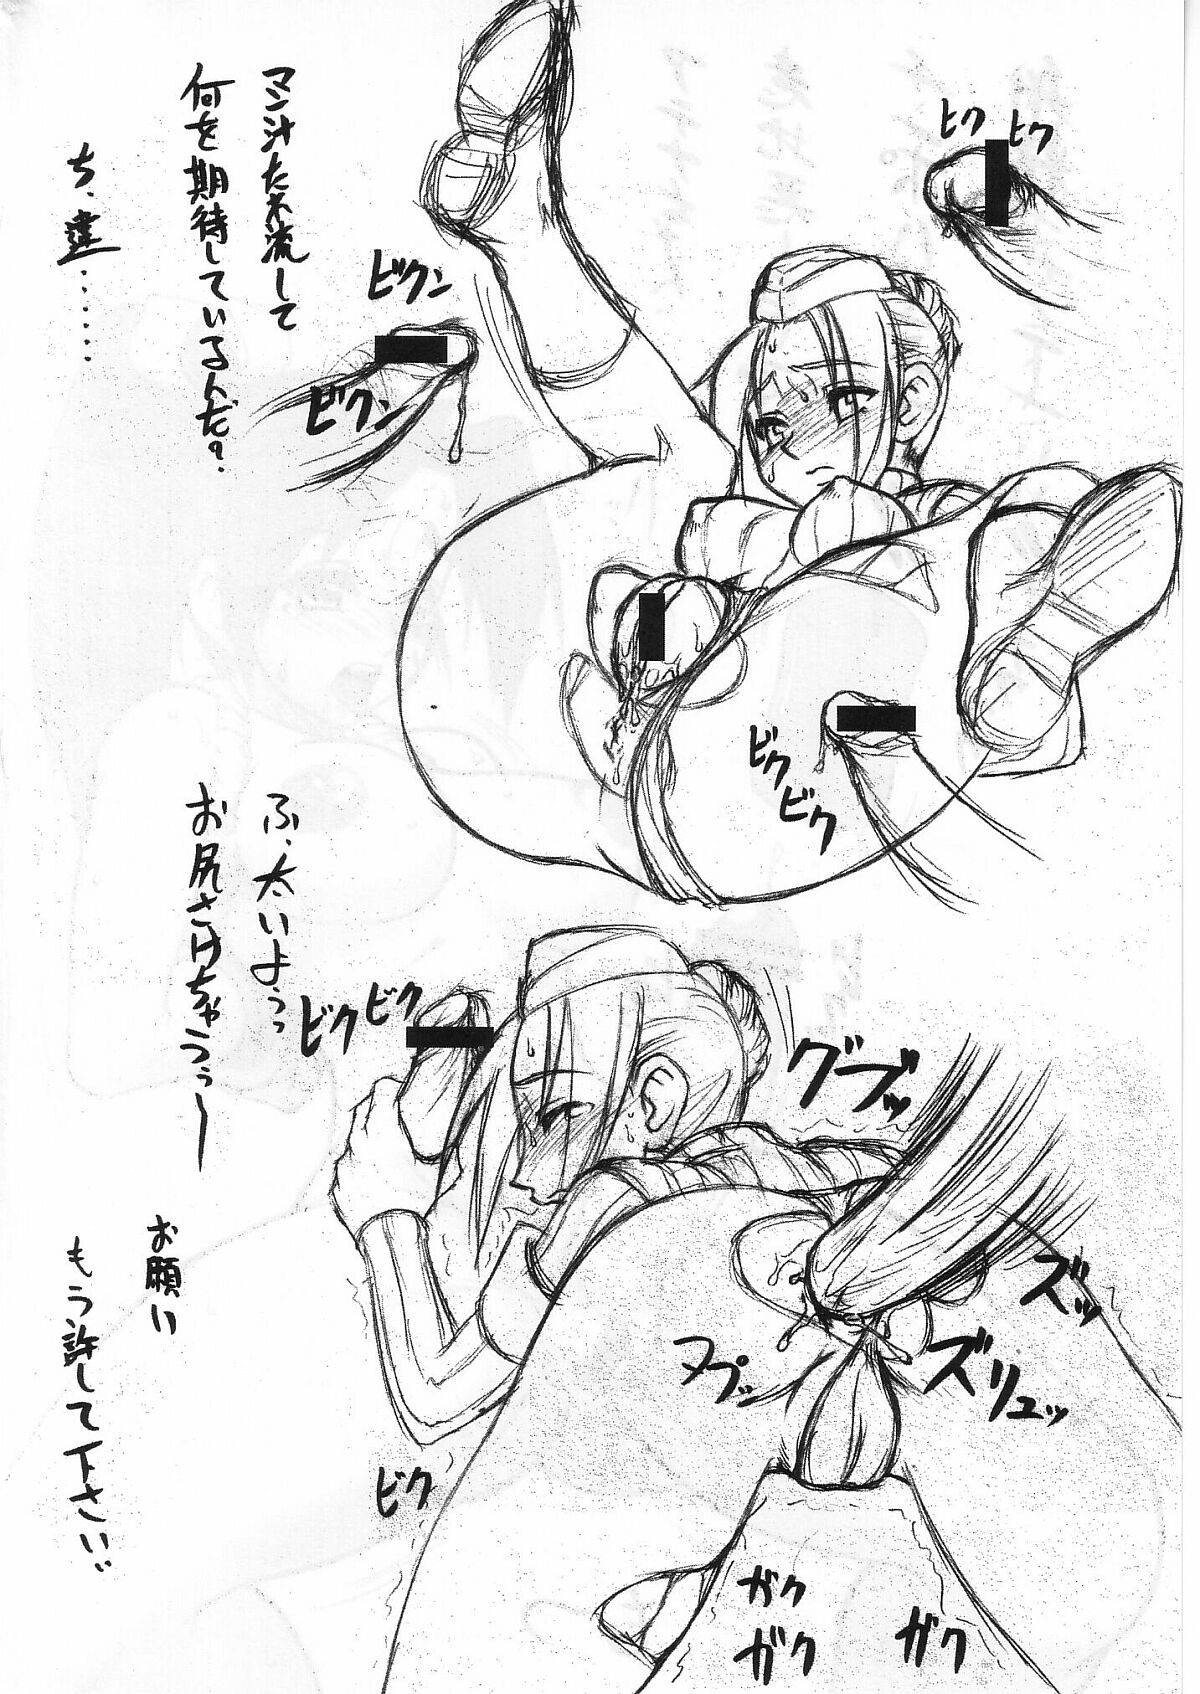 ビク
ビク
マン汁たれ流して
何を期待しているんだ?
ち、違‥‥‥
ビクン
ビクン
ビク
ビク
ふ、太いよぅっ
お尻さけちゃうぅー
ビク
ビク
グブッ
ズッ
ズリュッ
ヌプッ
お願い
もう許して下さい‥
ビク
ガク
ガク
ガク